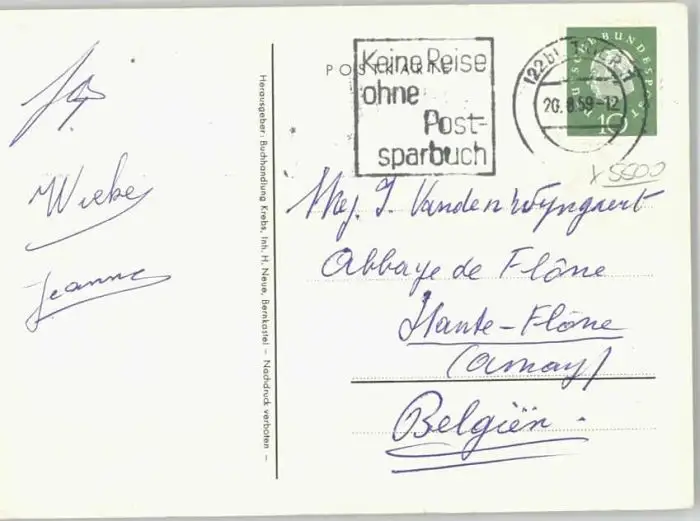 POSTKARTE
Keine Reise
ohne
Post-
sparbuch
(22b) TRIER 1
20.8.59-12
DEUTSCHE BUNDESPOST
10
x 5500
Wiebe
Jeanne
Herausgeber: Buchhandlung Krebs, Inh. H. Neue, Bernkastel – Nachdruck verboten –
Mej. J. Vanden Wyngaert
Abbaye de Flône
Hante-Flône
(Amay)
Belgiën.